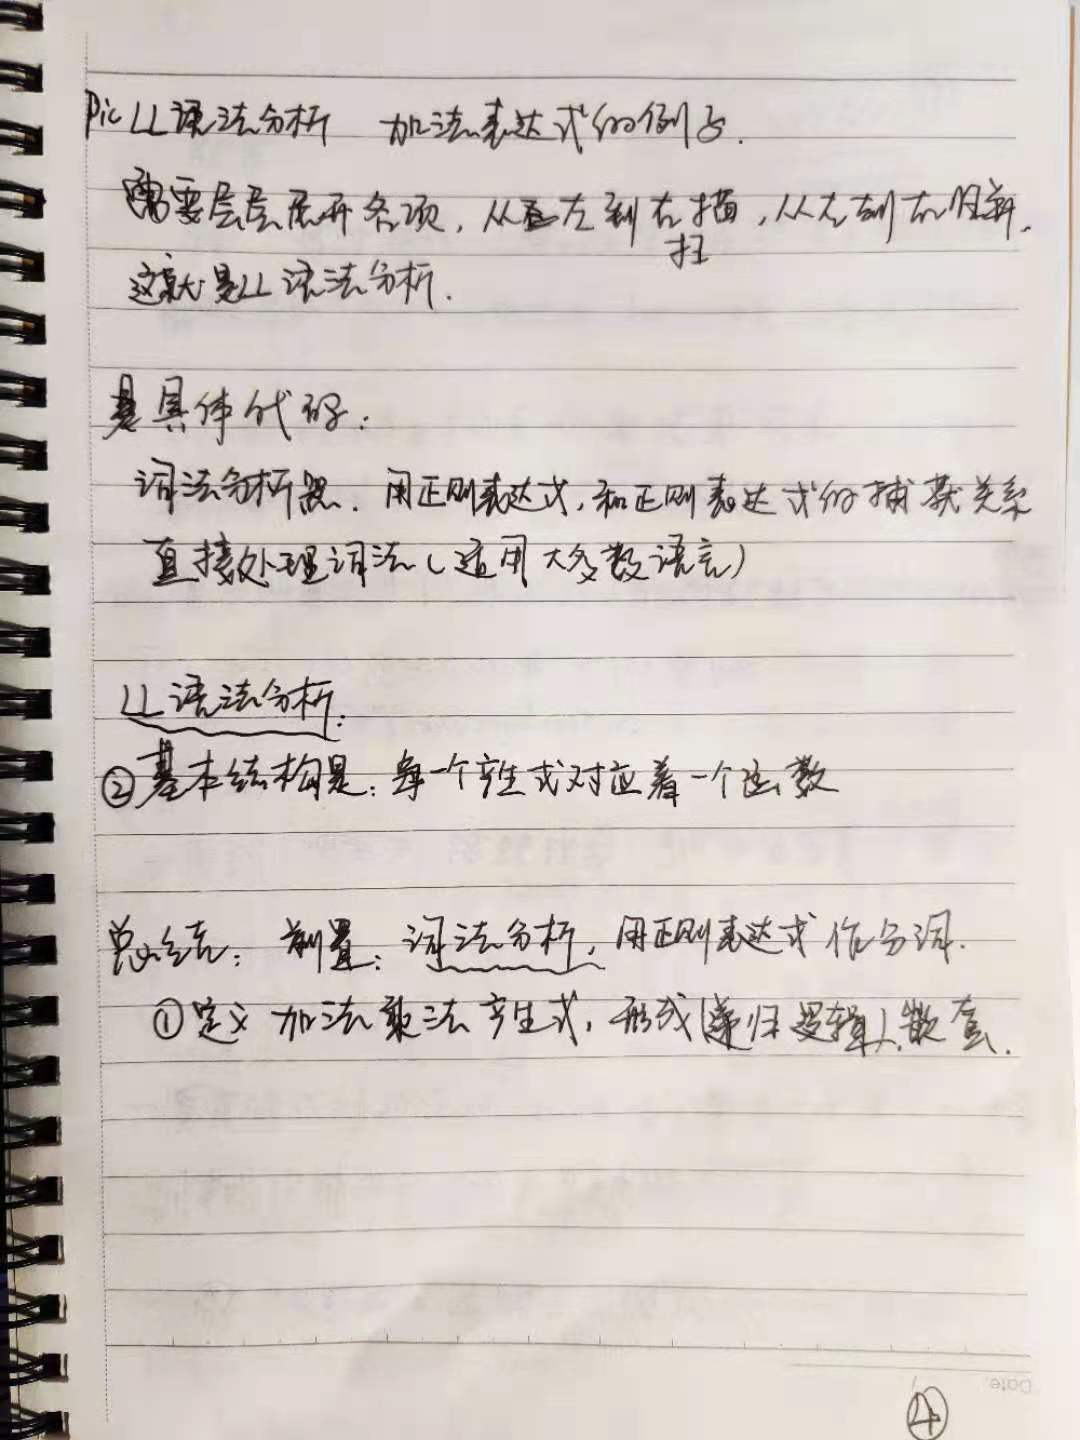 Pic LL语法分析 加法表达式的例子.
需要层层展开各项,从左到右扫描,从左到右归并,
这就是LL语法分析.
具体代码:
词法分析器.用正则表达式,和正则表达式的捕获关系
直接处理词法(适用大多数语言)
LL语法分析.
②基本结构是:每一个产生式对应着一个函数
总结:前置:词法分析,用正则表达式作分词.
①定义加法乘法产生式,形成(递归逻辑)、嵌套.
Date.
④